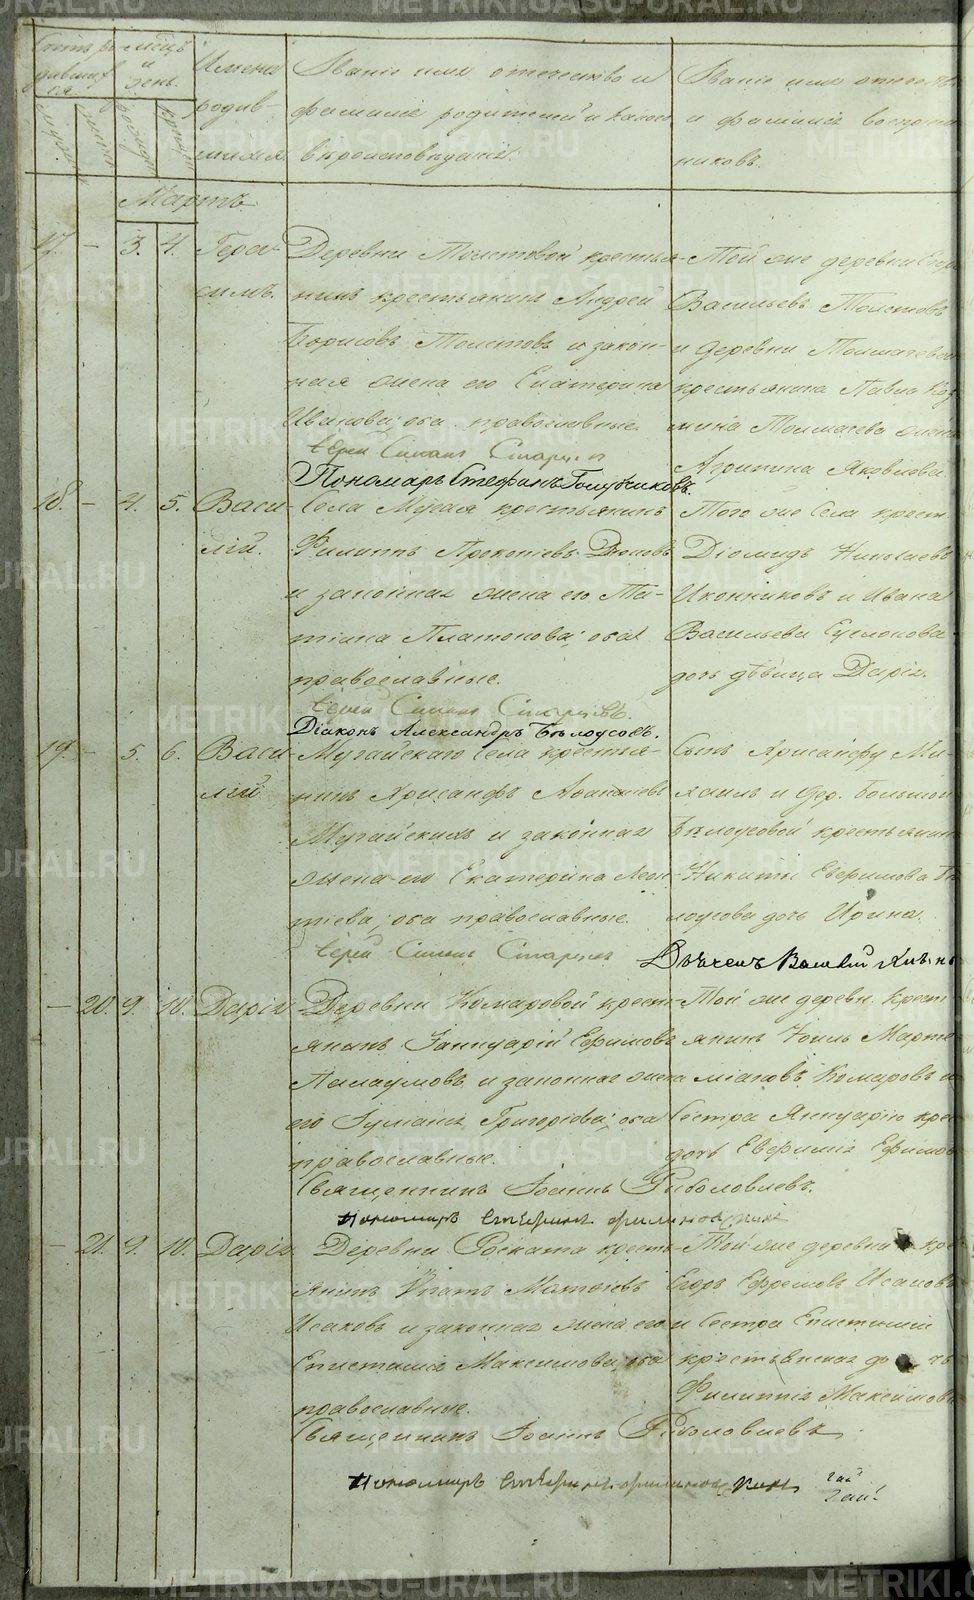 Счетъ ро- Мѣцъ Имена Званіе имя отечество и Званіе имя отечество
дившихся и день родив- фамилія родителей и какого и фамилія воспріем-
шихся вѣроисповѣданія. никовъ.
Мартъ
17. — 3. 4. Гера-
симъ.
Деревни Толстовой крестья-
нинъ крестьянинъ Андрей
Борисовъ Толстовъ и закон-
ная жена его Екатерина
Иванова; оба православные.
Іерей Симонъ Старцевъ
Пономарь Стефанъ Голубчиковъ.
Той же деревни Егоръ
Васильевъ Толстовъ
и деревни Толмачевой
крестьянина Павла Коз-
мина Толмачева жена
Агрипина Яковлева
18. — 4. 5. Васи-
лій.
Села Мугая крестьянинъ
Филиппъ Прокопіевъ
и законная жена его Та-
тіана Платонова; оба
православные.
Іерей Симонъ Старцевъ.
Діаконъ Александръ Бѣлоусовъ.
Того же Села крест.
Діомидъ Николаевъ
Иконниковъ и Ивана
Васильева
дочь дѣвица Дарія.
19. — 5. 6. Васи-
лій
Мугайскаго Села крестья-
нинъ Хрисанфъ Аѳанасіевъ
Мугайскихъ и законная
жена его Екатерина Леон-
тіева; оба православные.
Іерей Симонъ Старцевъ
Сынъ Хрисанфу Ми-
хаилъ и дер. Большой
Бѣлоусовой крестьянина
Никиты Евфимова Бѣ-
лоусова дочь Ирина.
Дьячекъ Василій
— 20. 9. 10. Дарія
Деревни Комаровой крест-
янинъ Іаннуарій Ефимовъ
и законная жена
его Іуліанія Григоріева; оба
православные.
Священникъ Іоаннъ Рыболовлевъ.
Пономарь
Той же деревн. Крест-
янинъ Іоиль Марте-
міановъ Комаровъ и
Сестра Яннуарію крест.
дочь Евфимія Ефимова
— 21. 9. 10. Дарія
Деревни Роската крестья-
янинъ Ипатъ Матѳіевъ
Исаковъ и законная жена его
Епистимія Максимова; оба
православные.
Священникъ Іоаннъ Рыболовлевъ
Пономарь
Той же деревни кре.
Егоръ Ефремовъ Исаковъ
и Сестра Епистиміи
крестьянская дочь
Филиппія Максимова
METRIKI.GASO-URAL.RU